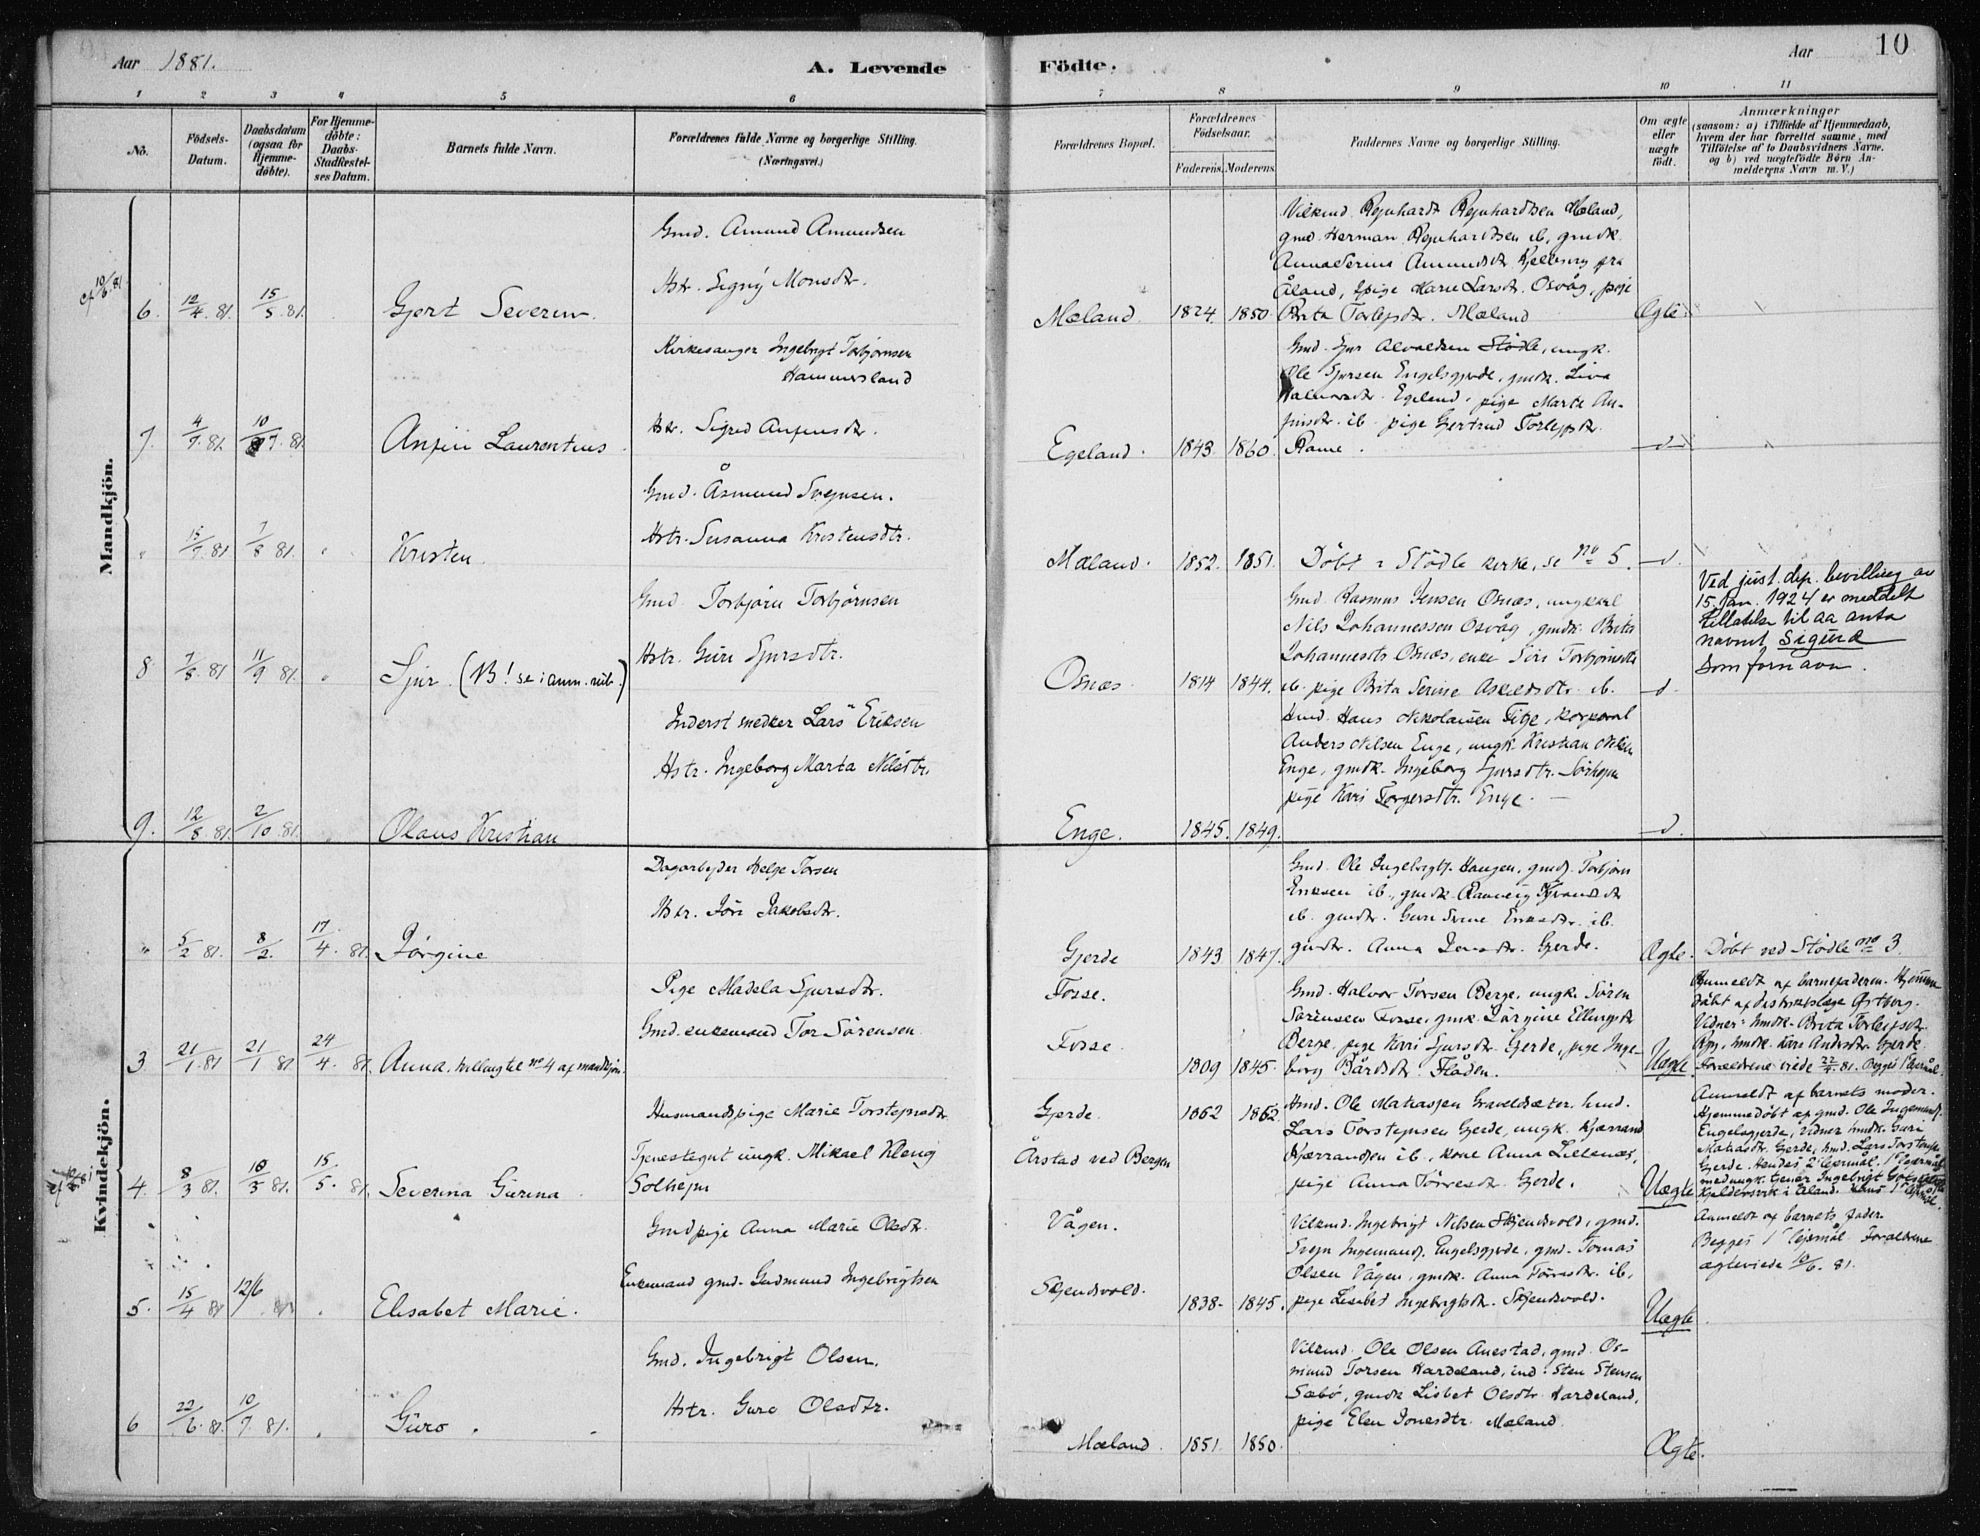 Aar 1881.
A. Levende
Födte.
Aar
10
1 2 3 4 5 6 7 8 9 10 11
No.
Födsels-
Datum.
Daabsdatum
(ogsaa for
Hjemme-
döbte).
For Hjemme-
döbte:
Daabs-
Stadfæstel-
ses Datum.
Barnets fulde Navn.
Forældrenes fulde Navne og borgerlige Stilling.
(Næringsvei.)
Forældrenes Bopæl.
Forældrenes
Födselsaar.
Faderens. Moderens.
Faddernes Navne og borgerlige Stilling.
Om ægte
eller
uægte
födt.
Anmærkninger
(saasom: a) i Tilfælde af Hjemmedaab,
hvem der har forrettet samme, med
Tilföielse af to Daabsvidners Navne.
og b) ved uægtefödte Börn An-
melderens Navn m. V.)
Mandkjön.
6. 12/4 81. 15/5 81. Gjert Severin.
Gmd. Amund Amundsen
Hstr. Signý Monsdtr.
Mæland. 1824. 1850.
Vilkmd. Rejnhardt Rejnhardtsen Mæland,
gmd. Herman Rejnhardtsen ib, gmdk.
Anna Serina Amundsdtr. fra
Åland, pige Marie Larsdtr. Osvåg, pige
Brita Torlejsdtr. Mæland
Ægte
7. 10/7 81. Anfin Laurentius.
Kirkesanger Ingebrigt Torbjørnsen
Hammersland
Hstr. Sigrid Anfinsdtr.
Egeland. 1843. 1860.
Gmd. Sjur Alvaldsen Stödle, ungk.
Ole Sjursen Engelsgjerde, gmdk. Liva
Halvorsdtr. Egeland, pige Marta An-
finsdtr. ib. pige Gjertrud Torlejfsdtr.
Rame.
-d-
" 15/7 81. 7/8 81. " Kristen.
Gmd. Åsmund Svejnsen.
Hstr. Susanna Kristensdtr.
Mæland. 1852. 1851.
Döbt i Stödle kirke, se no 5.
-d.
8 11/9 81. " Sjur (NB! se i anm. rub.)
Gmd. Torbjörn Torbjörnsen
Hstr. Guri Sjursdtr.
Osnæs. 1814 1844.
Gmd. Rasmus Jensen Osnæs, ungkarl
Nils Johannessen Osvåg, gmdk. Brita
Johannesdtr Osnæs, enke Siri Torbjörnsdtr
ib. pige Brita Serine Askildsdtr. ib.
-d.
Ved just. dep. bevilling av
15. Jan. 1924 er meddelt
tillatelse til aa anta
navnet Sigurd
som fornavn.
9. 12/8 81. 2/10 81. " Olaus Kristian
Inderst snedker Lars Eriksen
Hstr. Ingeborg Marta Nilsdtr.
Enge. 1845. 1849.
Hmd. Hans Nikolaisen Tige, korporal
Anders Nilsen Enge, ungk. Kristian Nilsen
Enge, gmdk. Ingeborg Sjursdtr. Sörhejm
pige Kari Torgersdtr. Enge.
-d.
Kvindekjön.
" 5/2 81. 8/2. 17/4. 81. Jörgine
Dagarbejder Helge Torsen
Hstr. Jöri Jakobsdtr.
Gjerde 1843 1847.
Gmd. Ole Ingebrigts. Haugen, gmd. Torbjörn
Eriksen ib., gmdk. Rannveig
ib. gmdtr. Guri Eriksdtr. ib.
gmdtr. Anna Jensdtr. Gjerde.
Ægte.
Döbt ved Stödle no 3.
3 21/1 81 21/1 81 24/4. 81. Anna, tvillingte no 4 af mandkjön.
Pige Madela Sjursdtr.
Gmd. enkemand Tor Sörensen
Fosse.
Fosse.
1809 1845.
Gmd. Halvor Torsen Berge, ungk. Sören
Sörensen Fosse, gmdk. Jörgine Ellingsdtr
Berge, pige Kari Sjursdtr. Gjerde, pige Inge-
borg Bårdsdtr. Flåden.
Uægte
Anmeldt af barnefaderen. Hjemme
döbt af distriktslæge Östberg.
Vidner: hmdk. Brita Torlejsdtr.
hmdk. Kari Andersdtr. Gjerde.
Forældrene viede 22/4. 81. Begges 1ste lejermål.
4. 8/3 81. 10/3 81. 15/5. 81. Severina Gurina
Husmandspige Marie Torstejnsdtr.
Tjenestegut ungk. Mikael Kleng
Solhejm
Gjerde.
Årstad ved Bergen
1862 1862
Hmd. Ole Matiassen Graveldsæter. hmd.
Lars Torstejnsen Gjerde, ungk. Kjærrand
Kjærrandsen ib., kone Anna Lillenæs,
pige Anna Törresdtr. Gjerde.
Uægte
Anmeldt af barnets moder.
Hjemmedöbt af gmd. Ole Ingemunds.
Engelsgjerde, Vidner hmdk. Guri
Matiasdtr. Gjerde, hmd. Lars Torstensen
Gjerde. Hendes 2det lejermål.
i Åland.
5. 15/4 81 12/6 81. " Elisabet Marie.
Gmdpige Anna Marie Olsdtr.
Enkemand gmd. Gudmund Ingebrigtsen
Vågen.
Skjendsvold.
1838. 1845.
Vilkmd. Ingebrigt Nilsen Skjendsvold, gmd.
Svejn Ingemunds. Engelsgjerde, gmd. Tomas
Olsen Vågen, gmdk. Anna Törresdtr. ib,
pige Lisabet Ingebrigtsdtr. Skjendsvold.
Uægte
Anmeldt af barnets fader.
Begges 1ste lejermål. Forældrene
ægteviede 10/6. 81.
6 22/6. 81. 10/7 81. " Guro.
Gmd. Ingebrigt Olsen.
Hstr. Guro Olsdtr.
Mæland. 1851. 1850.
Vilkmd. Ole Olsen Auestad, gmd. Os-
mund Torsen Hardeland, ind. Sten Stensen
Sæbö, gmdk. Lisbet Olsdtr. Hardeland,
pige Elen Jonesdtr. Mæland.
Ægte.